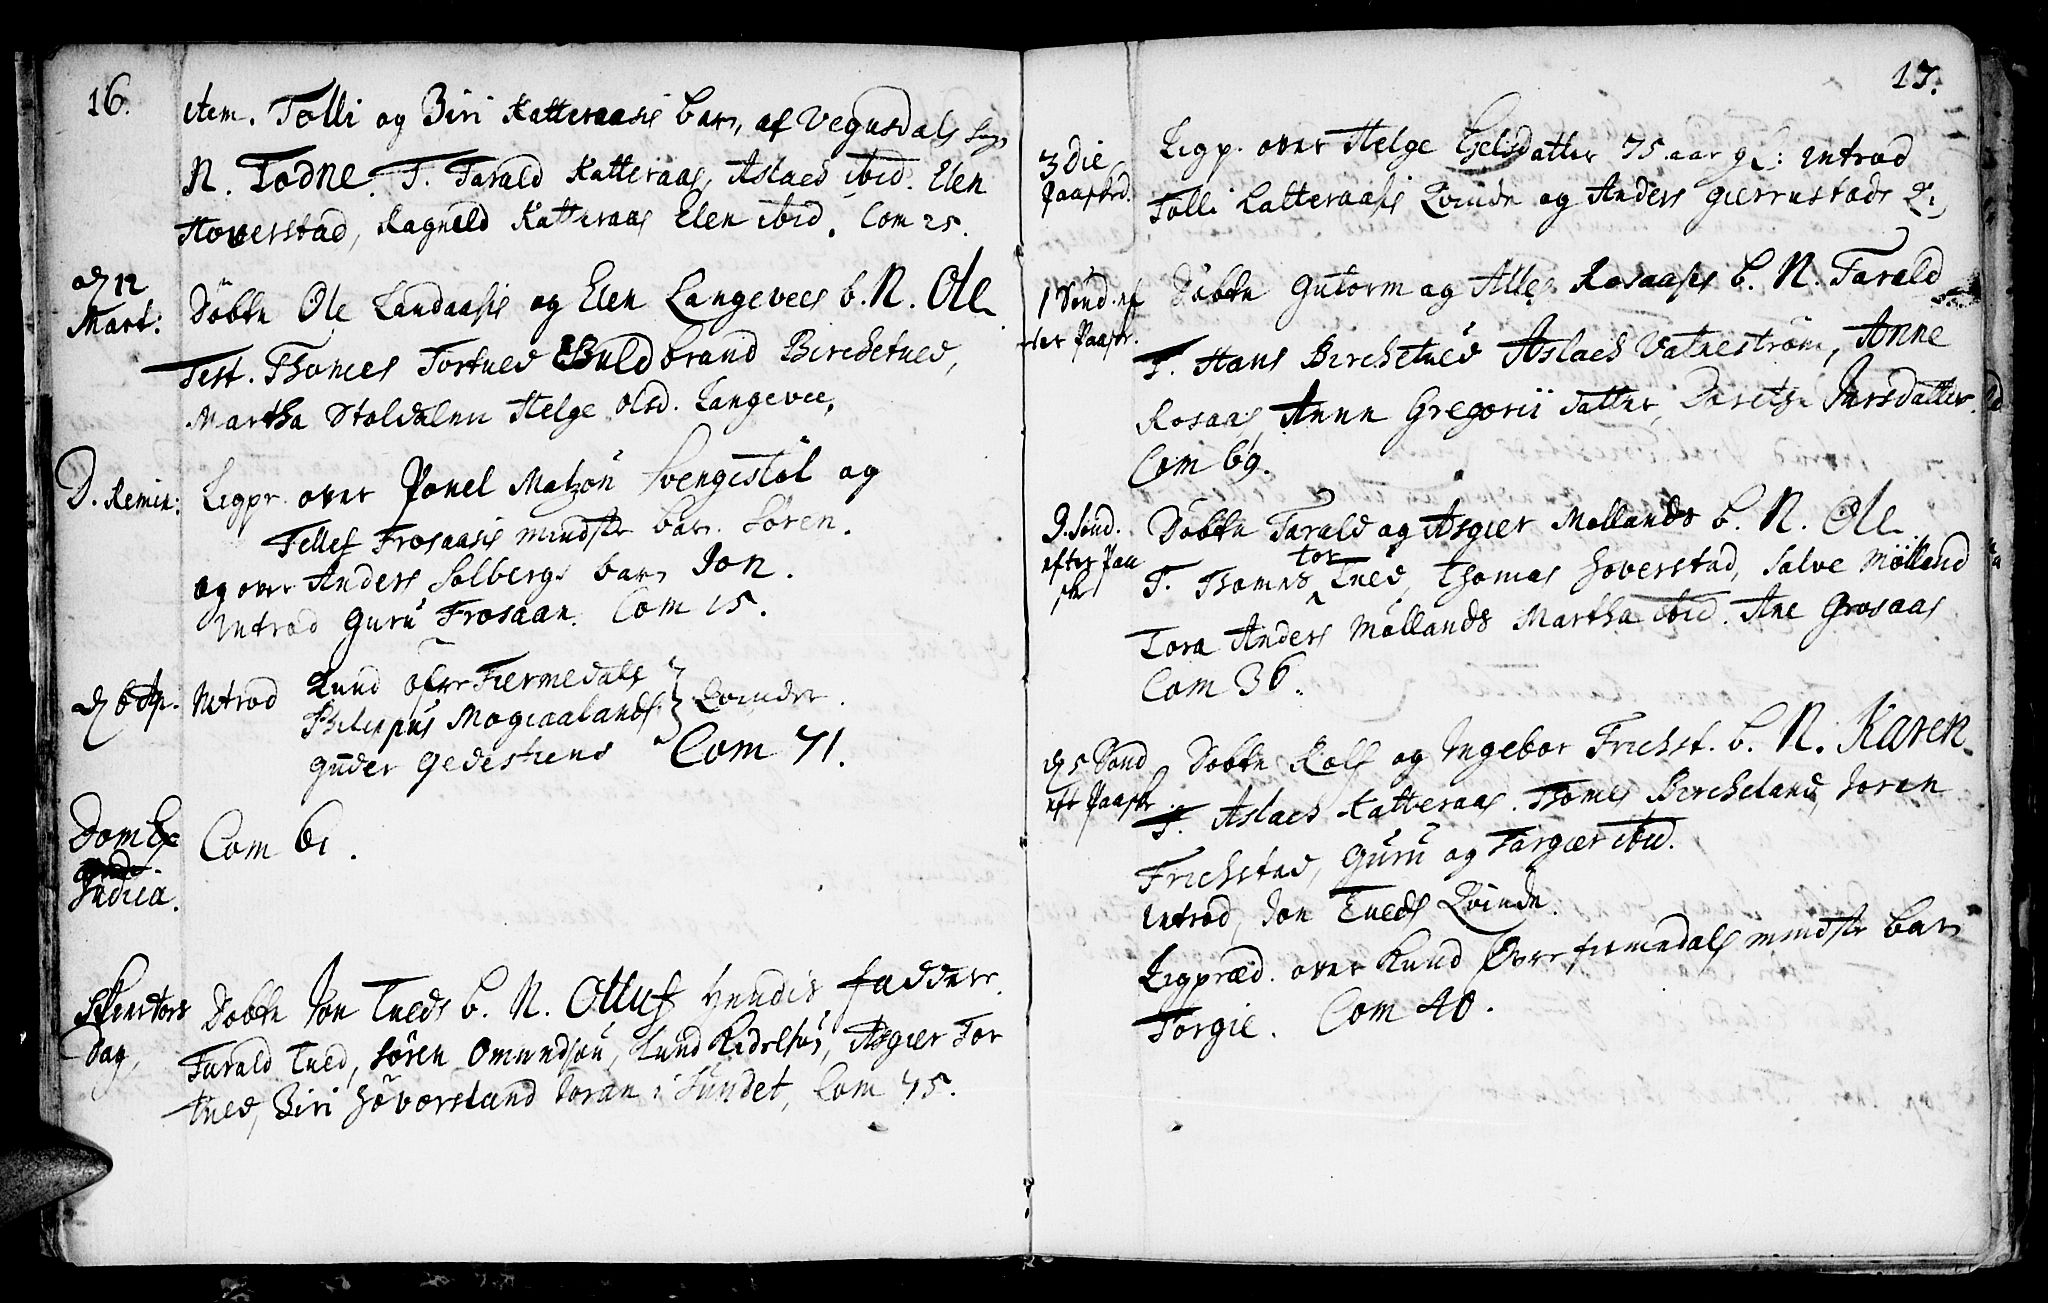 16.
item. Tolli og Biri Katteraasis barn, af Vegusdals Sogn
N. Todne. T. Tarald Katteraas, Aslaed ibid. Elen
Hoverstad, Ragneld Katteraas Elen ibid. Com 25.
d 12
Mart:
Döbtn Ole Landaasis og Elen Langevees b. N. Ole
Test. Thomes Tortued Guldbrand Birchetued,
Martha Stoldalen Helge Olsd. Langevee,
D. Remin:
Ligpr. over Jonel Matzön Svengestöl og
Tellef Frosaasis mindste barn Sören.
og over Anders Solbergs barn Jon.
Introd Guru Frosaan. Com 15.
d 6 Ap.
Introd Knud öfre Fiermedals
Philippus Mogiaalands Qvinder.
Guder Gedestiens Com 71.
Dom Ex
Judica.
Com 61.
Skiertors
dag,
Döbtn Jon Tueds b. N. Olluf hendis faddere
Tarald Tued, Sören Omundsön, Knud Kedelsön, Asgier Tor
tued, Biri Hövorstand Joran i Sundet, Com 45.
17.
3 Die
Paaskd.
Ligp. over Helge Eyelsdatter 75 aar gl: Introd
Tolli Katteraasis Qvinde og Anders Gierrustads Q:
1 Sönd. ef
ter Paask.
Döbtn Gutorm og Alles Rosaasis b. N. Tarald
T. Hans Birchetued Aslaed Vatneström, Anne
Rosaas, Anne Gregorii datter, Doretze Jursdatter.
Com 69.
2. Sönd.
efter Paa
ske
Döbtn Tarald og Asgier Mollands b. N. Ole
tor
T. Thomes Tued, Thomas Hoverstad, Salve Mölland
Tora Anders Möllands Martha ibid. Ane Grosaas
Com 36.
d 5 Sönd
eft Paaske
Döbtn Rolf og Ingebor Frichst. b. N. Karen
T. Aslaed Katteraas. Thomes Bercheland, Joren
Frichstad, Guru og Targær ibid.
Introd, Jon Tueds Qvinde.
Ligpræd. over Knud Övre fiermedals mindste barn
Torgie. Com 40.